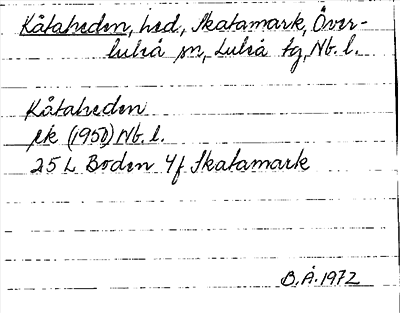 Kåtaheden, hed, Skatamark, Över-
luleå sn, Luleå tg, Nb. l.
Kåtaheden
ek (1950) Nb. l.
25 L Boden 4f Skatamark
B. Å. 1972